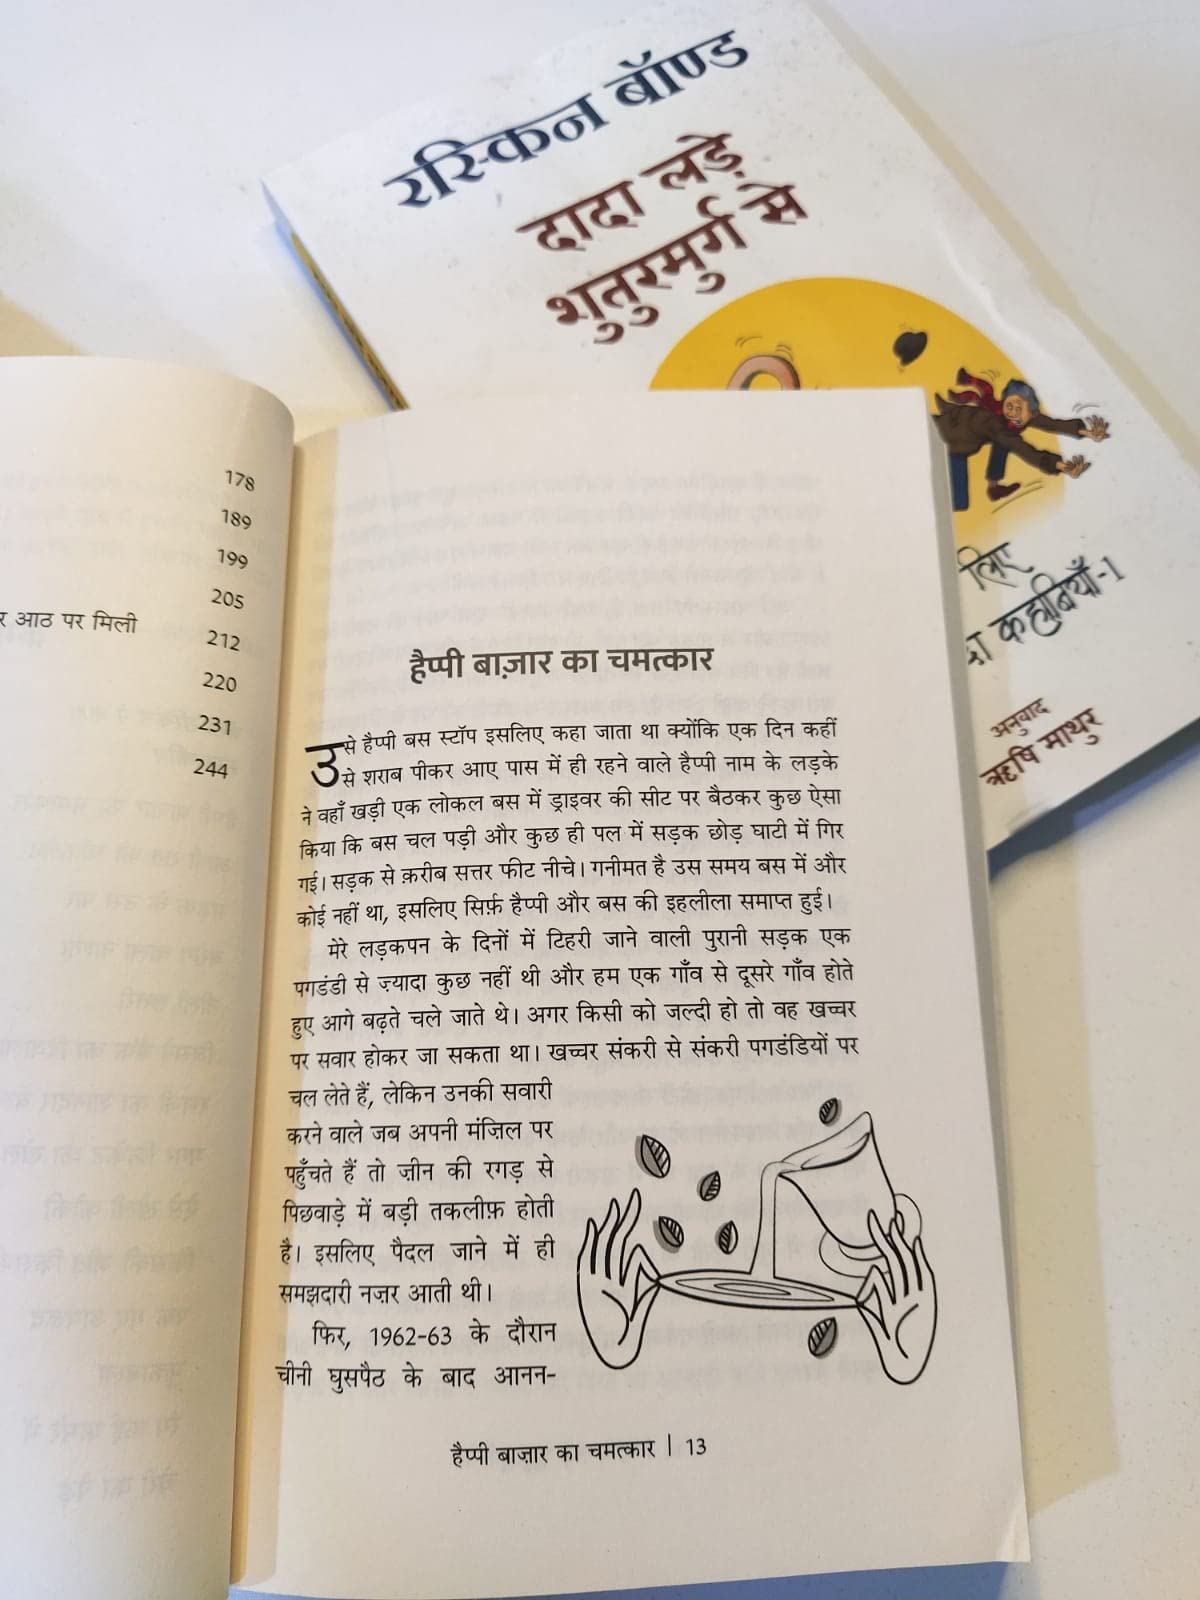 रस्किन बॉण्ड
दादा लड़े
शुतुरमुर्ग से
लिए
कहानियाँ-1
अनुवाद
ऋषि माथुर
178
189
199
205
र आठ पर मिली 212
220
231
244
हैप्पी बाज़ार का चमत्कार
उसे हैप्पी बस स्टॉप इसलिए कहा जाता था क्योंकि एक दिन कहीं
से शराब पीकर आए पास में ही रहने वाले हैप्पी नाम के लड़के
ने वहाँ खड़ी एक लोकल बस में ड्राइवर की सीट पर बैठकर कुछ ऐसा
किया कि बस चल पड़ी और कुछ ही पल में सड़क छोड़ घाटी में गिर
गई। सड़क से क़रीब सत्तर फीट नीचे। गनीमत है उस समय बस में और
कोई नहीं था, इसलिए सिर्फ़ हैप्पी और बस की इहलीला समाप्त हुई।
मेरे लड़कपन के दिनों में टिहरी जाने वाली पुरानी सड़क एक
पगडंडी से ज़्यादा कुछ नहीं थी और हम एक गाँव से दूसरे गाँव होते
हुए आगे बढ़ते चले जाते थे। अगर किसी को जल्दी हो तो वह खच्चर
पर सवार होकर जा सकता था। खच्चर संकरी से संकरी पगडंडियों पर
चल लेते हैं, लेकिन उनकी सवारी
करने वाले जब अपनी मंज़िल पर
पहुँचते हैं तो ज़ीन की रगड़ से
पिछवाड़े में बड़ी तकलीफ़ होती
है। इसलिए पैदल जाने में ही
समझदारी नज़र आती थी।
फिर, 1962-63 के दौरान
चीनी घुसपैठ के बाद आनन-
हैप्पी बाज़ार का चमत्कार | 13